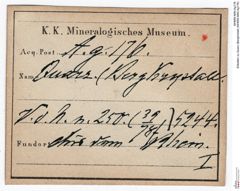 K. K. Mineralogisches Museum.
Acq. Post. A.g. 176.
Name Quarz. (Bergkrystall.
V. d. h. n. 250. ( ) 5944.
Fundort Aus dem
I